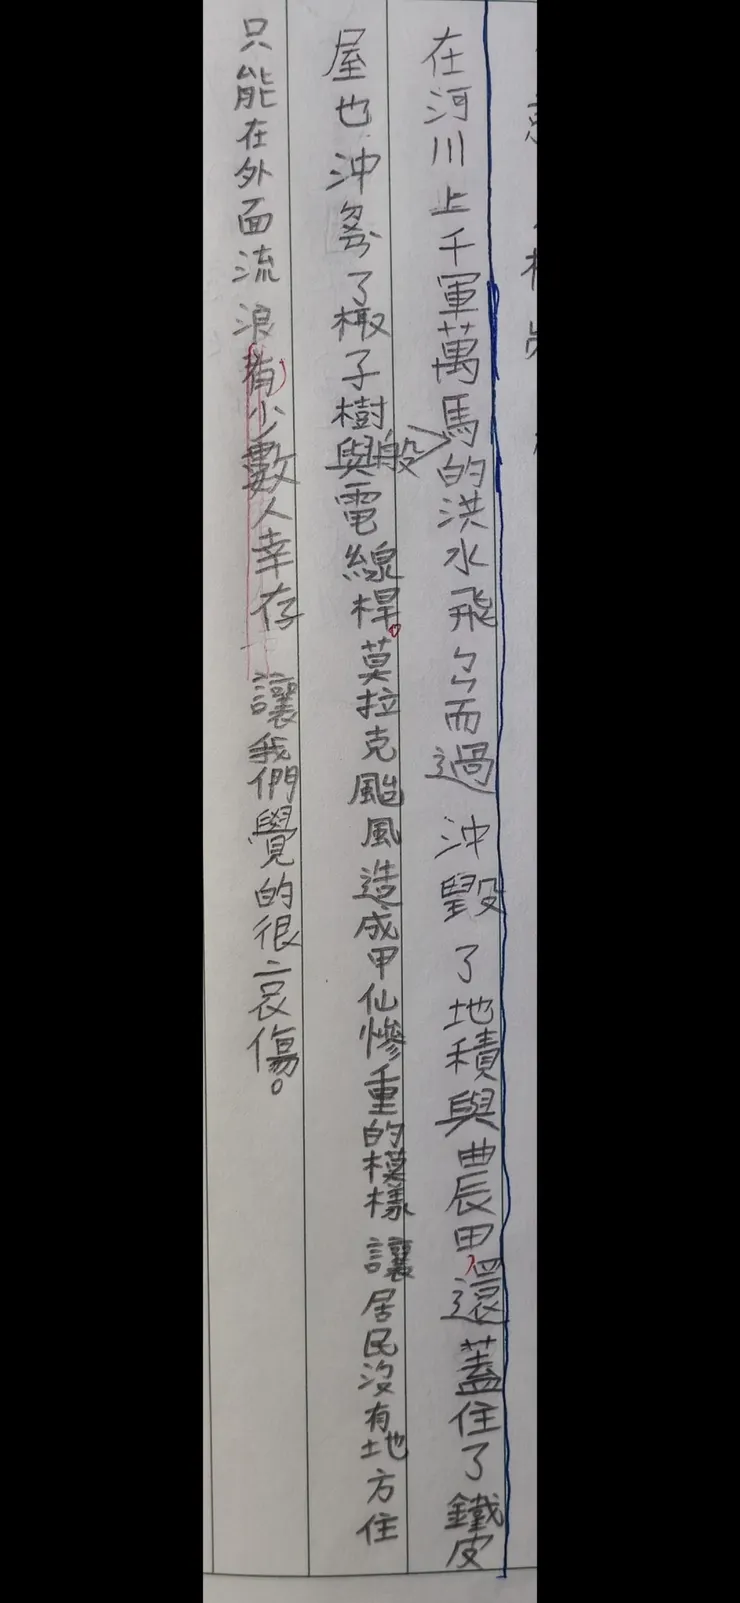 在河川上千軍萬馬般的洪水飛ㄅㄣ而過沖毀了地積與農田,還蓋住了鐵皮
屋也沖了椰子樹與電線桿。莫拉克颱風造成甲仙慘重的模樣讓居民沒有地方住
只能在外面流浪有少數人幸存讓我們覺的很哀傷。